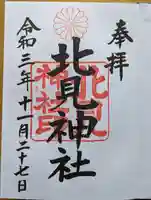 奉拝
北見神社
北見
神社
令和三年十一月二十七日